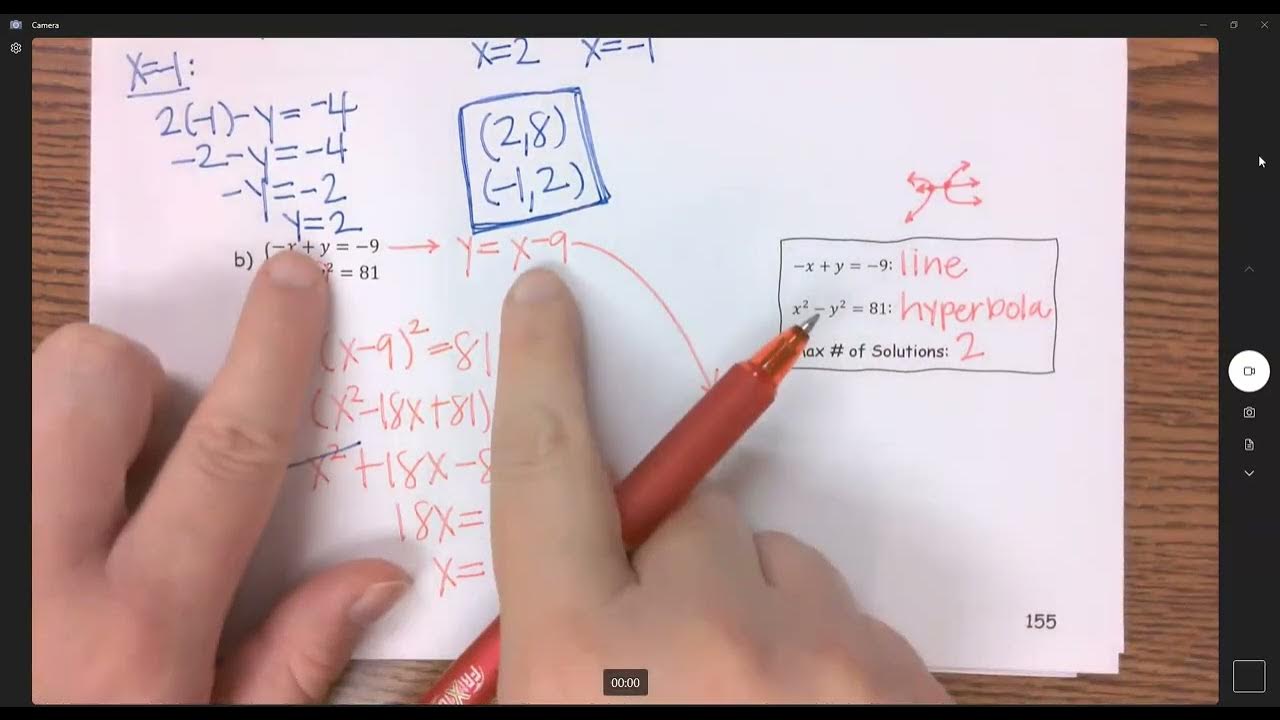 Camera
x=2 x=-1
x=-1:
2(-1)-y=-4
-2-y=-4
-y=-2
y=2
(2,8)
(-1,2)
b) (-x + y = -9 → y= x-9
² = 81
-x + y = -9: line
x² - y² = 81: hyperbola
# of Solutions: 2
(x-9)²=81
(x²-18x+81)
x²+18x-8
18x=
x=
155
00:00